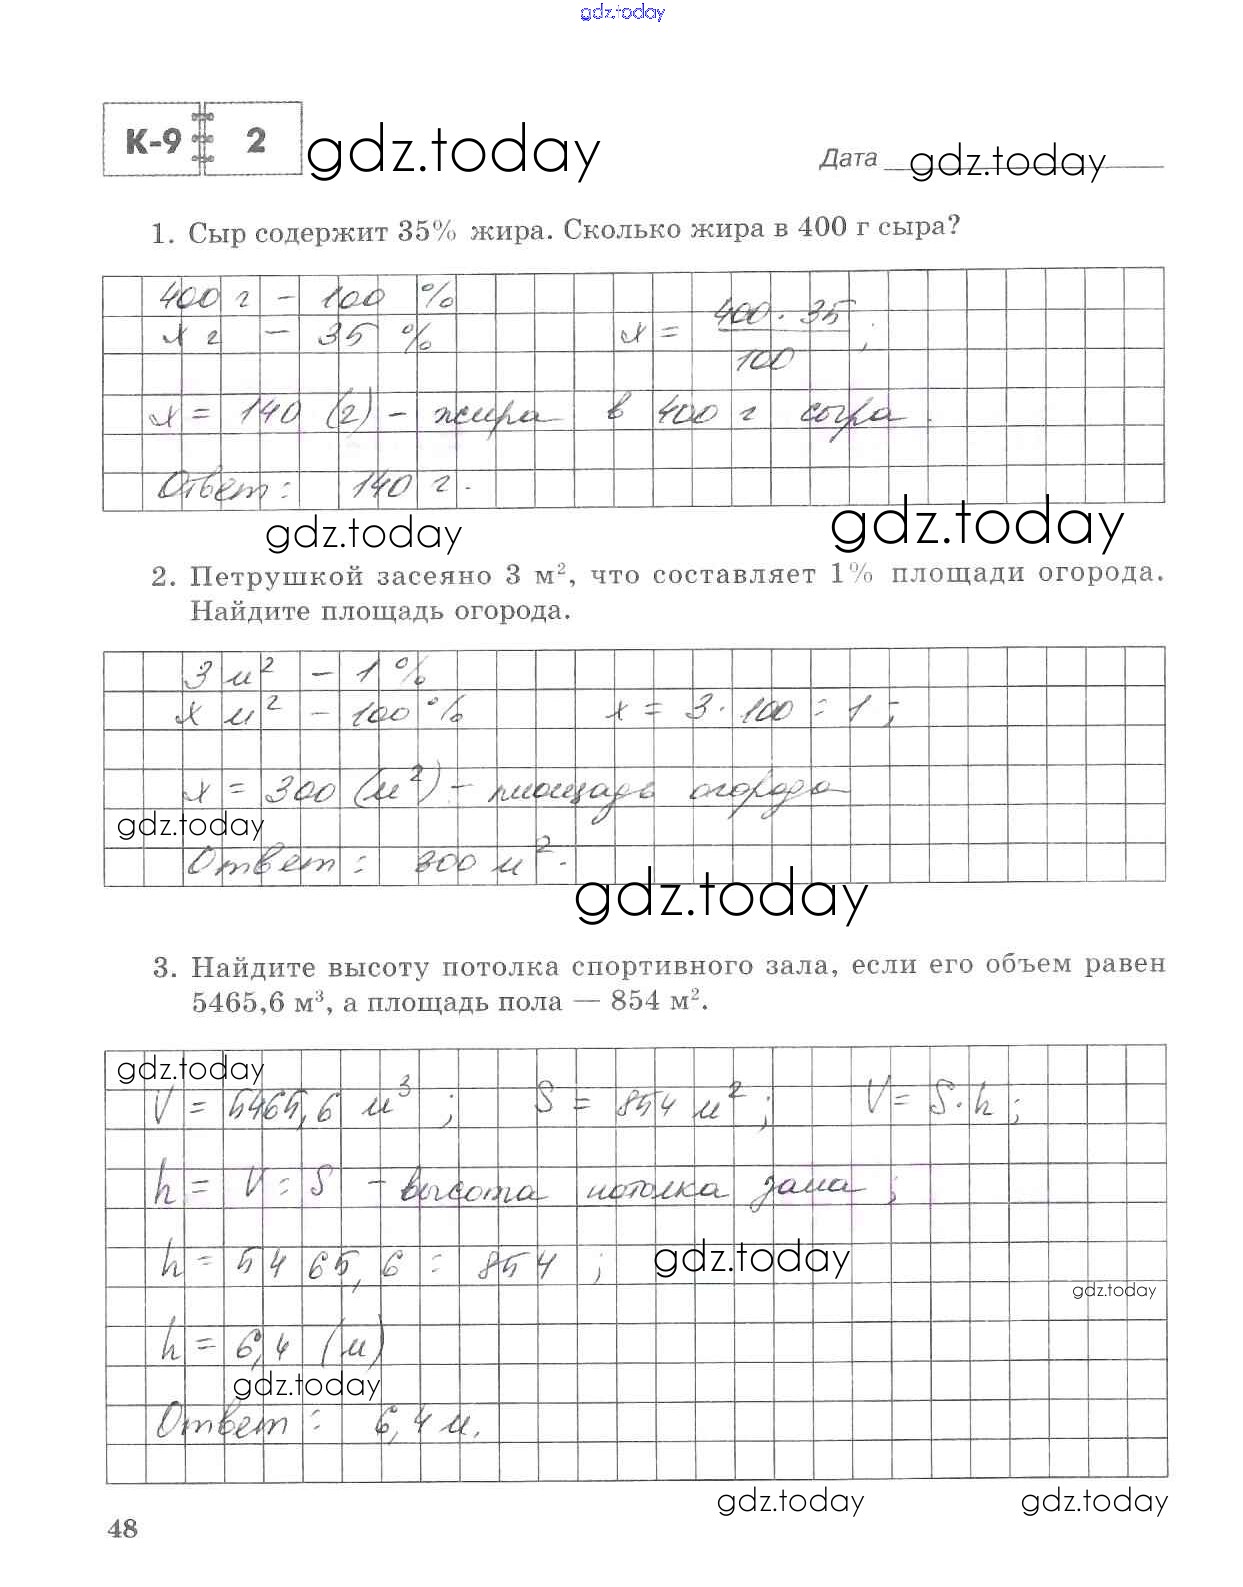 gdz.today
К-9 2 gdz.today Дата gdz.today
1. Сыр содержит 35% жира. Сколько жира в 400 г сыра?
400 г – 100 %
х г – 35 % х = 400 · 35 / 100 ;
х = 140 (г) – жира в 400 г сыра.
Ответ: 140 г.
gdz.today gdz.today
2. Петрушкой засеяно 3 м², что составляет 1% площади огорода.
Найдите площадь огорода.
3 м² – 1 %
х м² – 100 % х = 3 · 100 : 1 ;
х = 300 (м²) – площадь огорода
gdz.today
Ответ: 300 м².
gdz.today
3. Найдите высоту потолка спортивного зала, если его объем равен
5465,6 м³, а площадь пола — 854 м².
gdz.today
V = 5465,6 м³ ; S = 854 м² ; V = S · h ;
h = V : S – высота потолка зала ;
h = 5465,6 : 854 ; gdz.today
gdz.today
h = 6,4 (м)
gdz.today
Ответ : 6,4 м.
gdz.today gdz.today
48